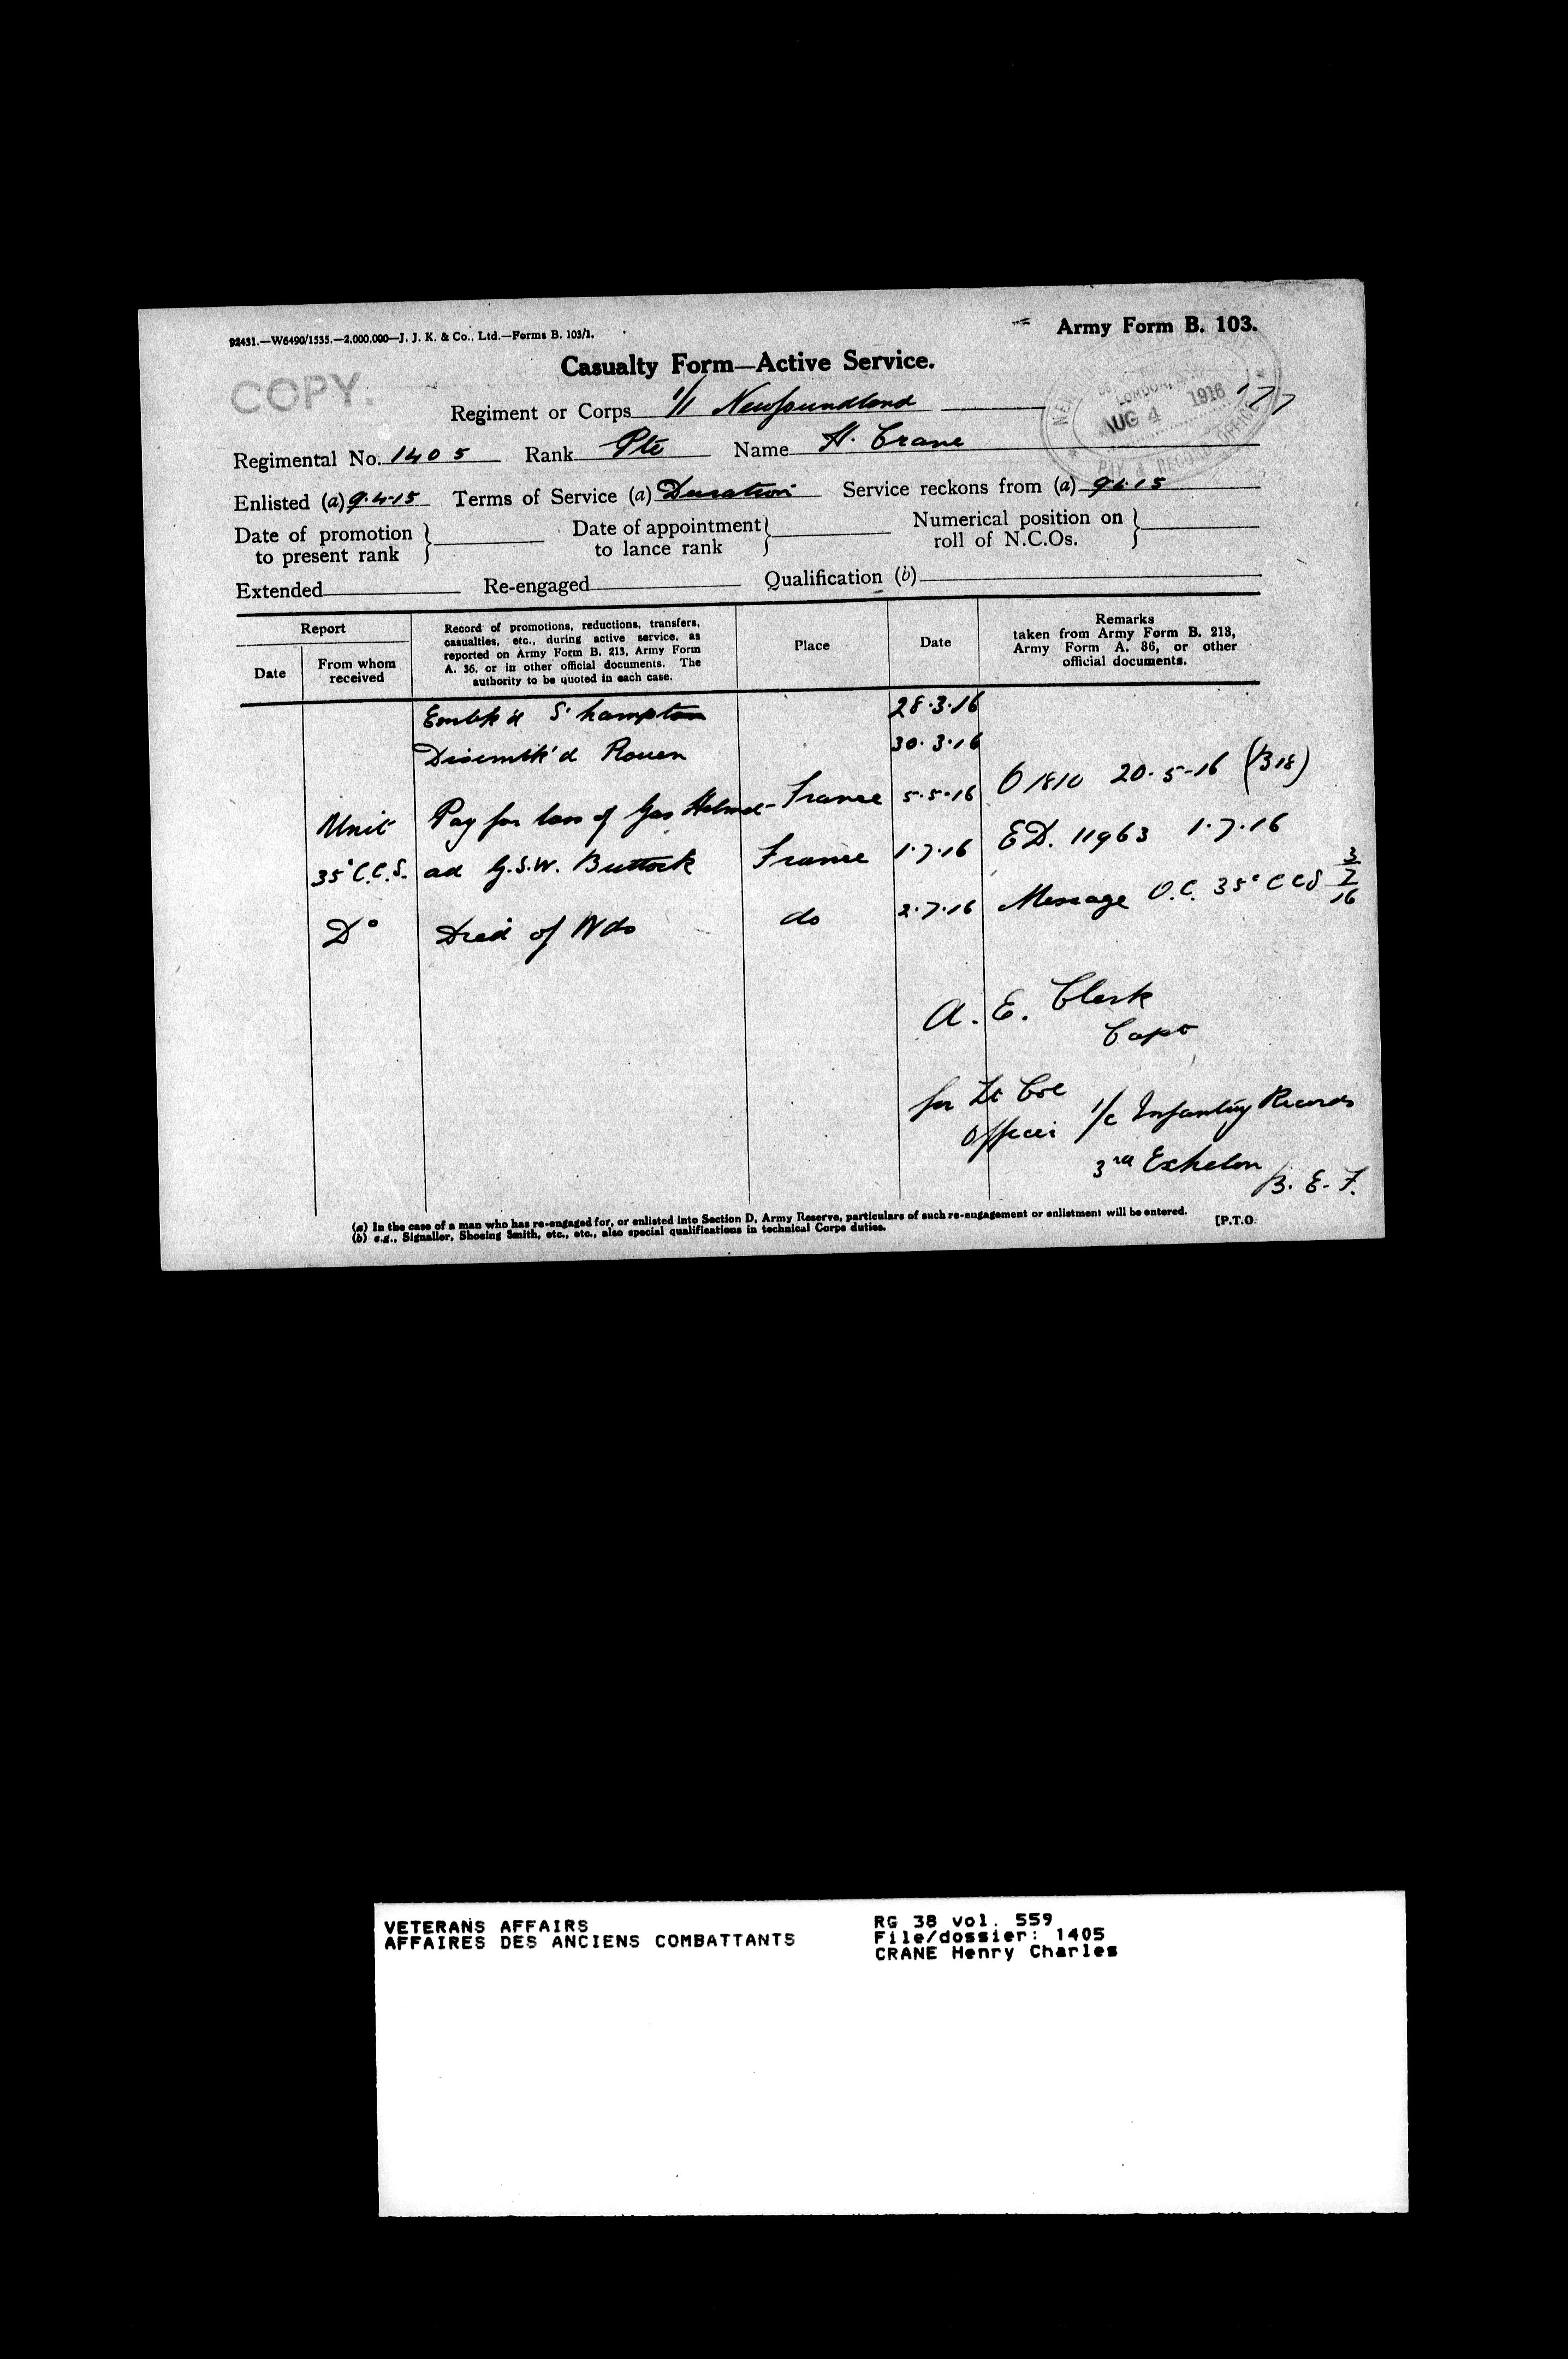 92431.—W6490/1535.—2,000,000—J. J. K. & Co., Ltd.—Forms B. 103/1.
Army Form B. 103.
Casualty Form—Active Service.
COPY.
Regiment or Corps 1/1 Newfoundland
AUG 4 1916
PAY & RECORD OFFICE
Regimental No. 1405 Rank Pte Name H. Crane
Enlisted (a) 9.4.15 Terms of Service (a) Duration Service reckons from (a) 9.4.15
Date of promotion to present rank } Date of appointment to lance rank } Numerical position on roll of N.C.Os. }
Extended Re-engaged Qualification (b)
Report
Date
From whom received
Record of promotions, reductions, transfers,
casualties, etc., during active service, as
reported on Army Form B. 213, Army Form
A. 36, or in other official documents. The
authority to be quoted in each case.
Place
Date
Remarks
taken from Army Form B. 213,
Army Form A. 36, or other
official documents.
Embk'd S'hampton 28.3.16
Disembk'd Rouen 30.3.16
Unit Pay for loss of Gas Helmet France 5.5.16 O 1810 20-5-16 (B 18)
35 C.C.S. ad G.S.W. Buttock France 1.7.16 ED. 11963 1.7.16
Do Died of Wds do 2.7.16 Message O.C. 35 CCS 3/7/16
A. E. Clark
Capt
for Lt Col
Officer i/c Infantry Records
3rd Echelon
B. E. F.
(a) In the case of a man who has re-engaged for, or enlisted into Section D, Army Reserve, particulars of such re-engagement or enlistment will be entered.
(b) e.g., Signaller, Shoeing Smith, etc., etc., also special qualifications in technical Corps duties.
[P.T.O.
VETERANS AFFAIRS
AFFAIRES DES ANCIENS COMBATTANTS
RG 38 vol. 559
File/dossier: 1405
CRANE Henry Charles